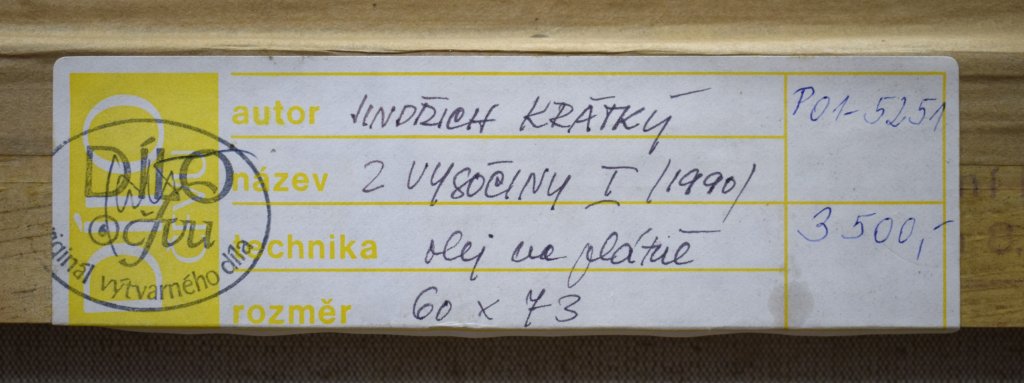 autor JINDŘICH KRÁTKÝ P01-5251
název Z VYSOČINY I (1990)
technika olej na plátně 3 500,-
rozměr 60 x 73
DÍLO
originál výtvarného díla